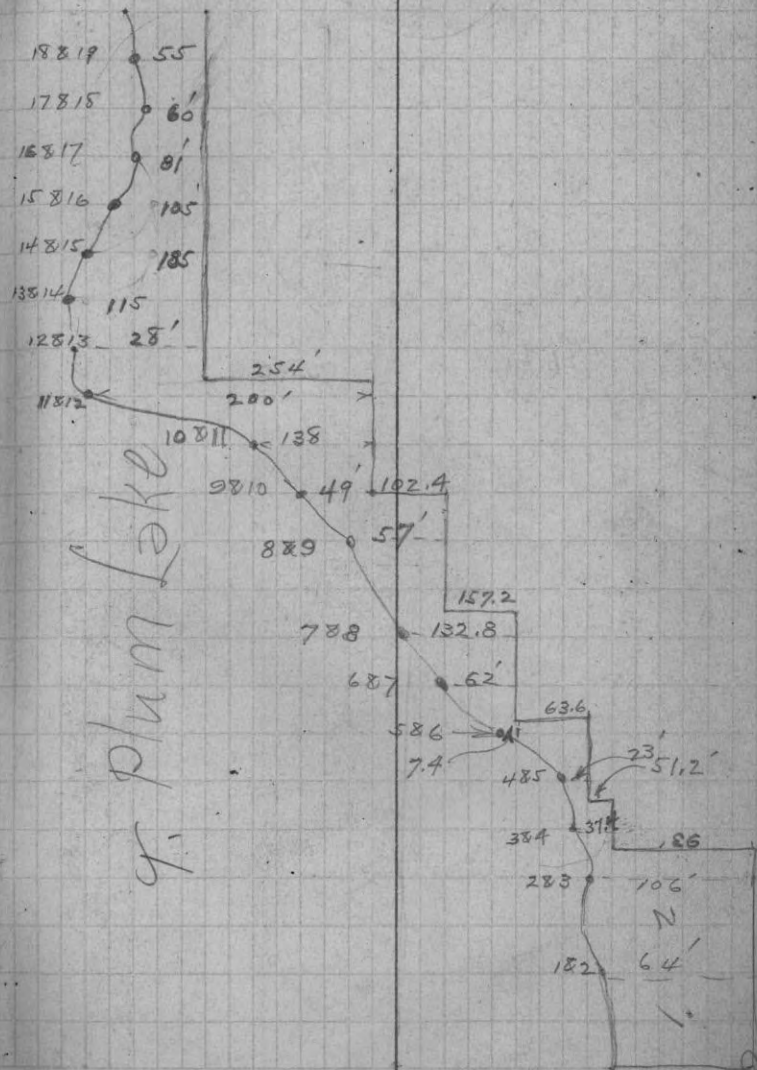 18&19 55
17&18 60'
16&17 81'
15&16 105'
14&15 185
13&14 115
12&13 28'
254'
11&12 200'
10&11 138
9&10 49' 102.4
8&9 57'
157.2
7&8 132.8
6&7 62'
63.6
5&6
7.4
23'
4&5 51.2'
3&4
2&3 106'
2
1&2 64'
1
Plum Lake